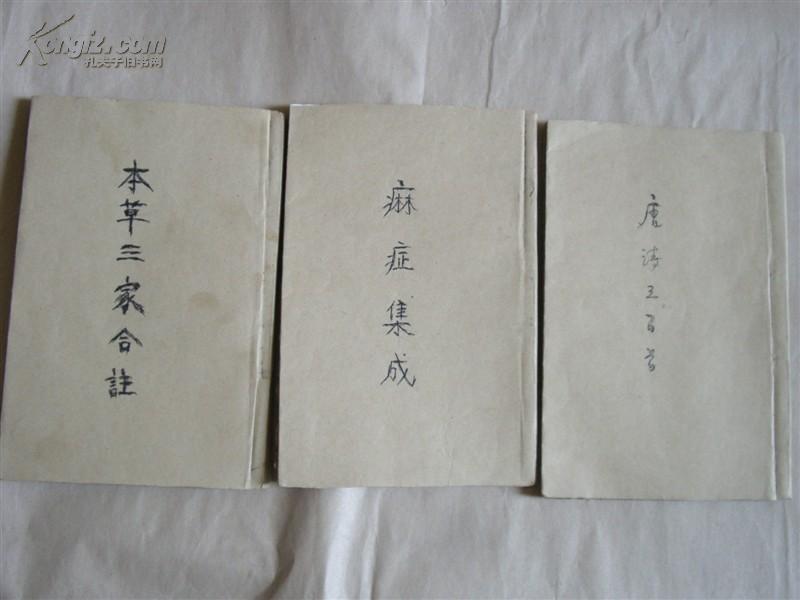 Kongfz.com
孔夫子旧书网
本草三家合註
痳症集成
唐诗三百首